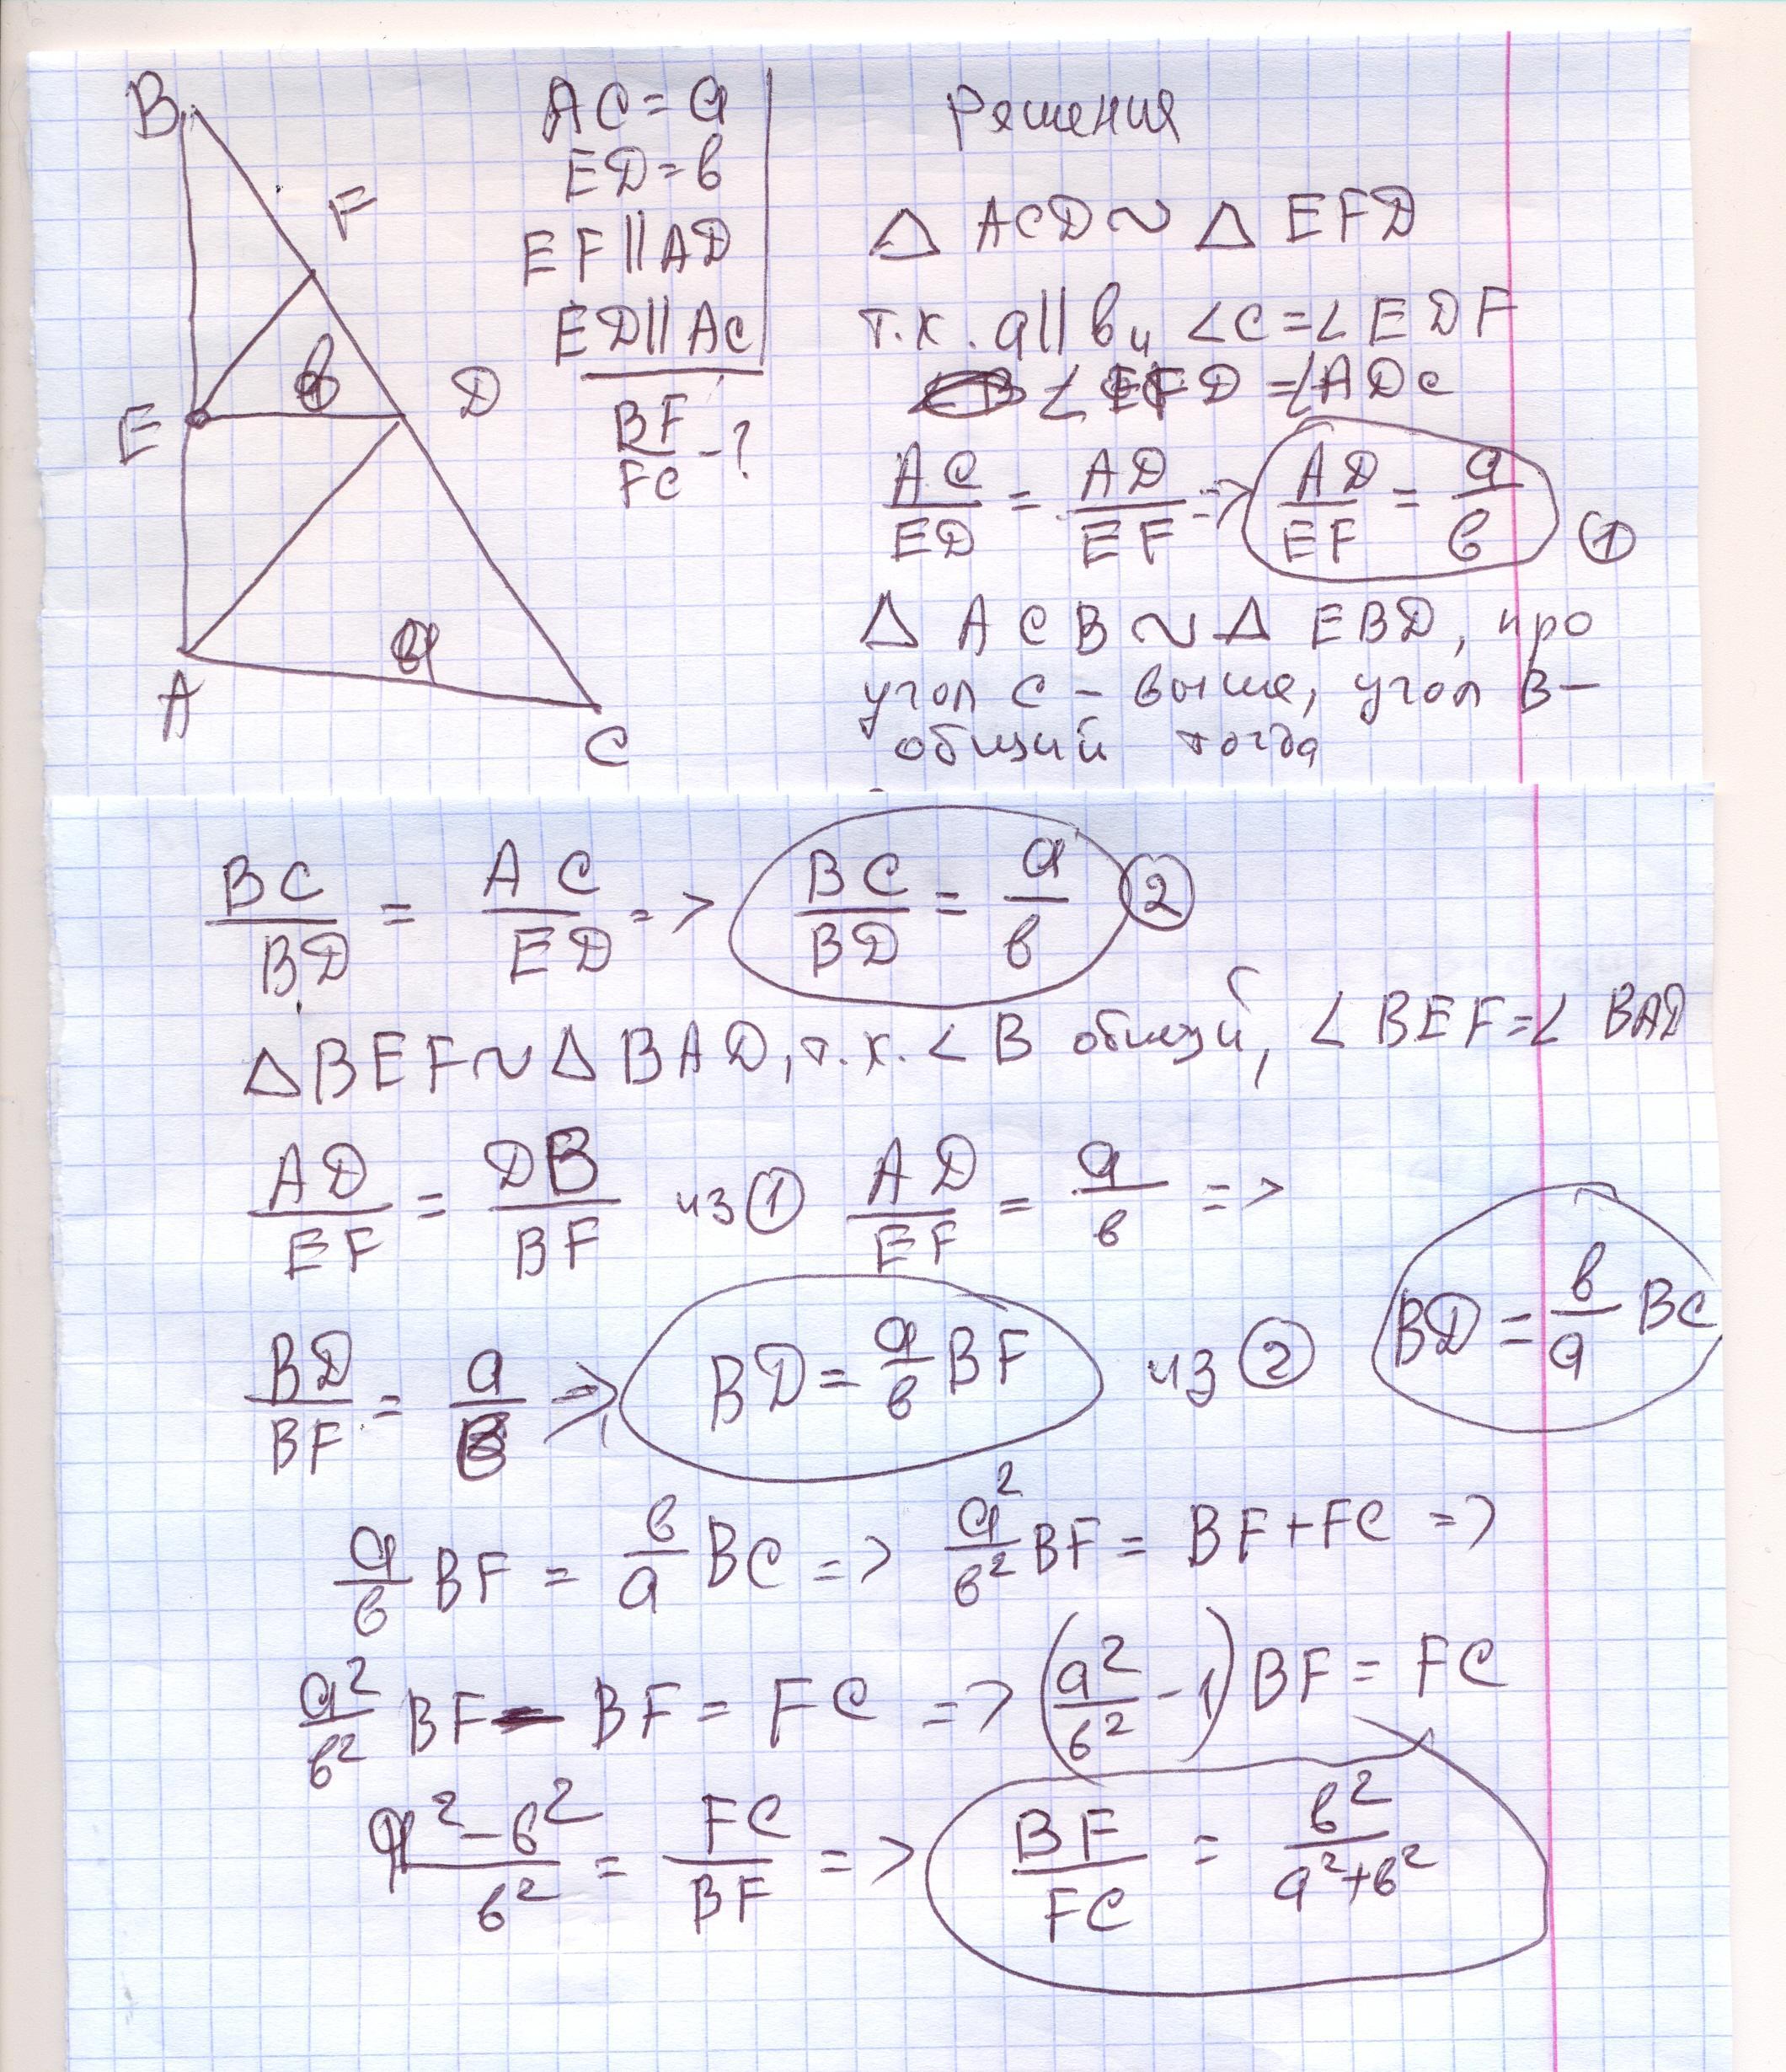 B
F
E
в
D
A
а
C
AC = a
ED = в
EF || AD
ED || AC
BF/FC - ?
Решения
△ ACD ~ △ EFD
т.к. a || в и ∠C = ∠EDF
∠EFD = ∠ADC
AC/ED = AD/EF => AD/EF = a/в ①
△ ACB ~ △ EBD, про
угол C - выше, угол B -
общий тогда
BC/BD = AC/ED => BC/BD = a/в ②
△BEF ~ △BAD, т.к. ∠B общий, ∠BEF = ∠BAD
AD/EF = DB/BF из ① AD/EF = a/в =>
BD/BF = a/в => BD = a/в BF из ② BD = в/a BC
a/в BF = в/a BC => a²/в² BF = BF + FC =>
a²/в² BF - BF = FC => (a²/в² - 1) BF = FC
a² - в²/в² = FC/BF => BF/FC = в²/a² + в²